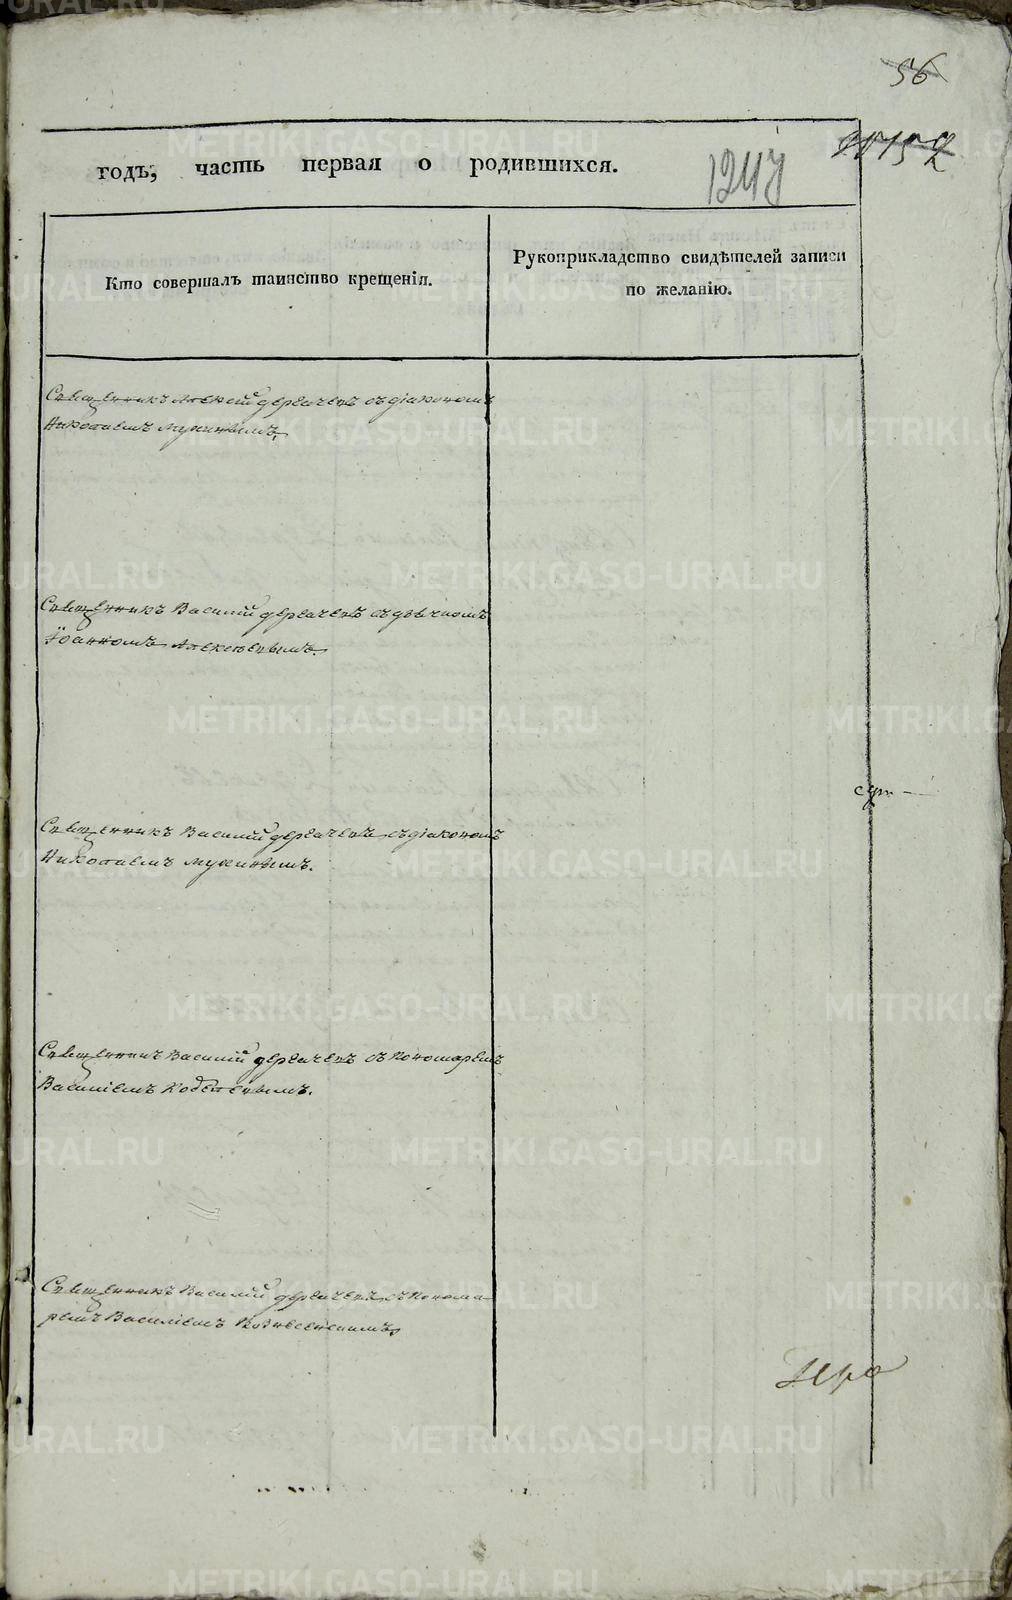 56
годъ, часть первая о родившихся.
1247
Кто совершалъ таинство крещенія.
Рукоприкладство свидѣтелей записи
по желанію.
Священникъ Алексій Дергачевъ съ діакономъ
Николаемъ Мукинымъ,
Священникъ Василій Дергачевъ съ дьячкомъ
Іоанномъ Алексѣевымъ.
Священникъ Василій Дергачевъ съ діакономъ
Николаемъ Мукинымъ.
Священникъ Василій Дергачевъ съ Пономаремъ
Василіемъ
Священникъ Василій Дергачевъ съ Понома-
ремъ Василіемъ
METRIKI.GASO-URAL.RU